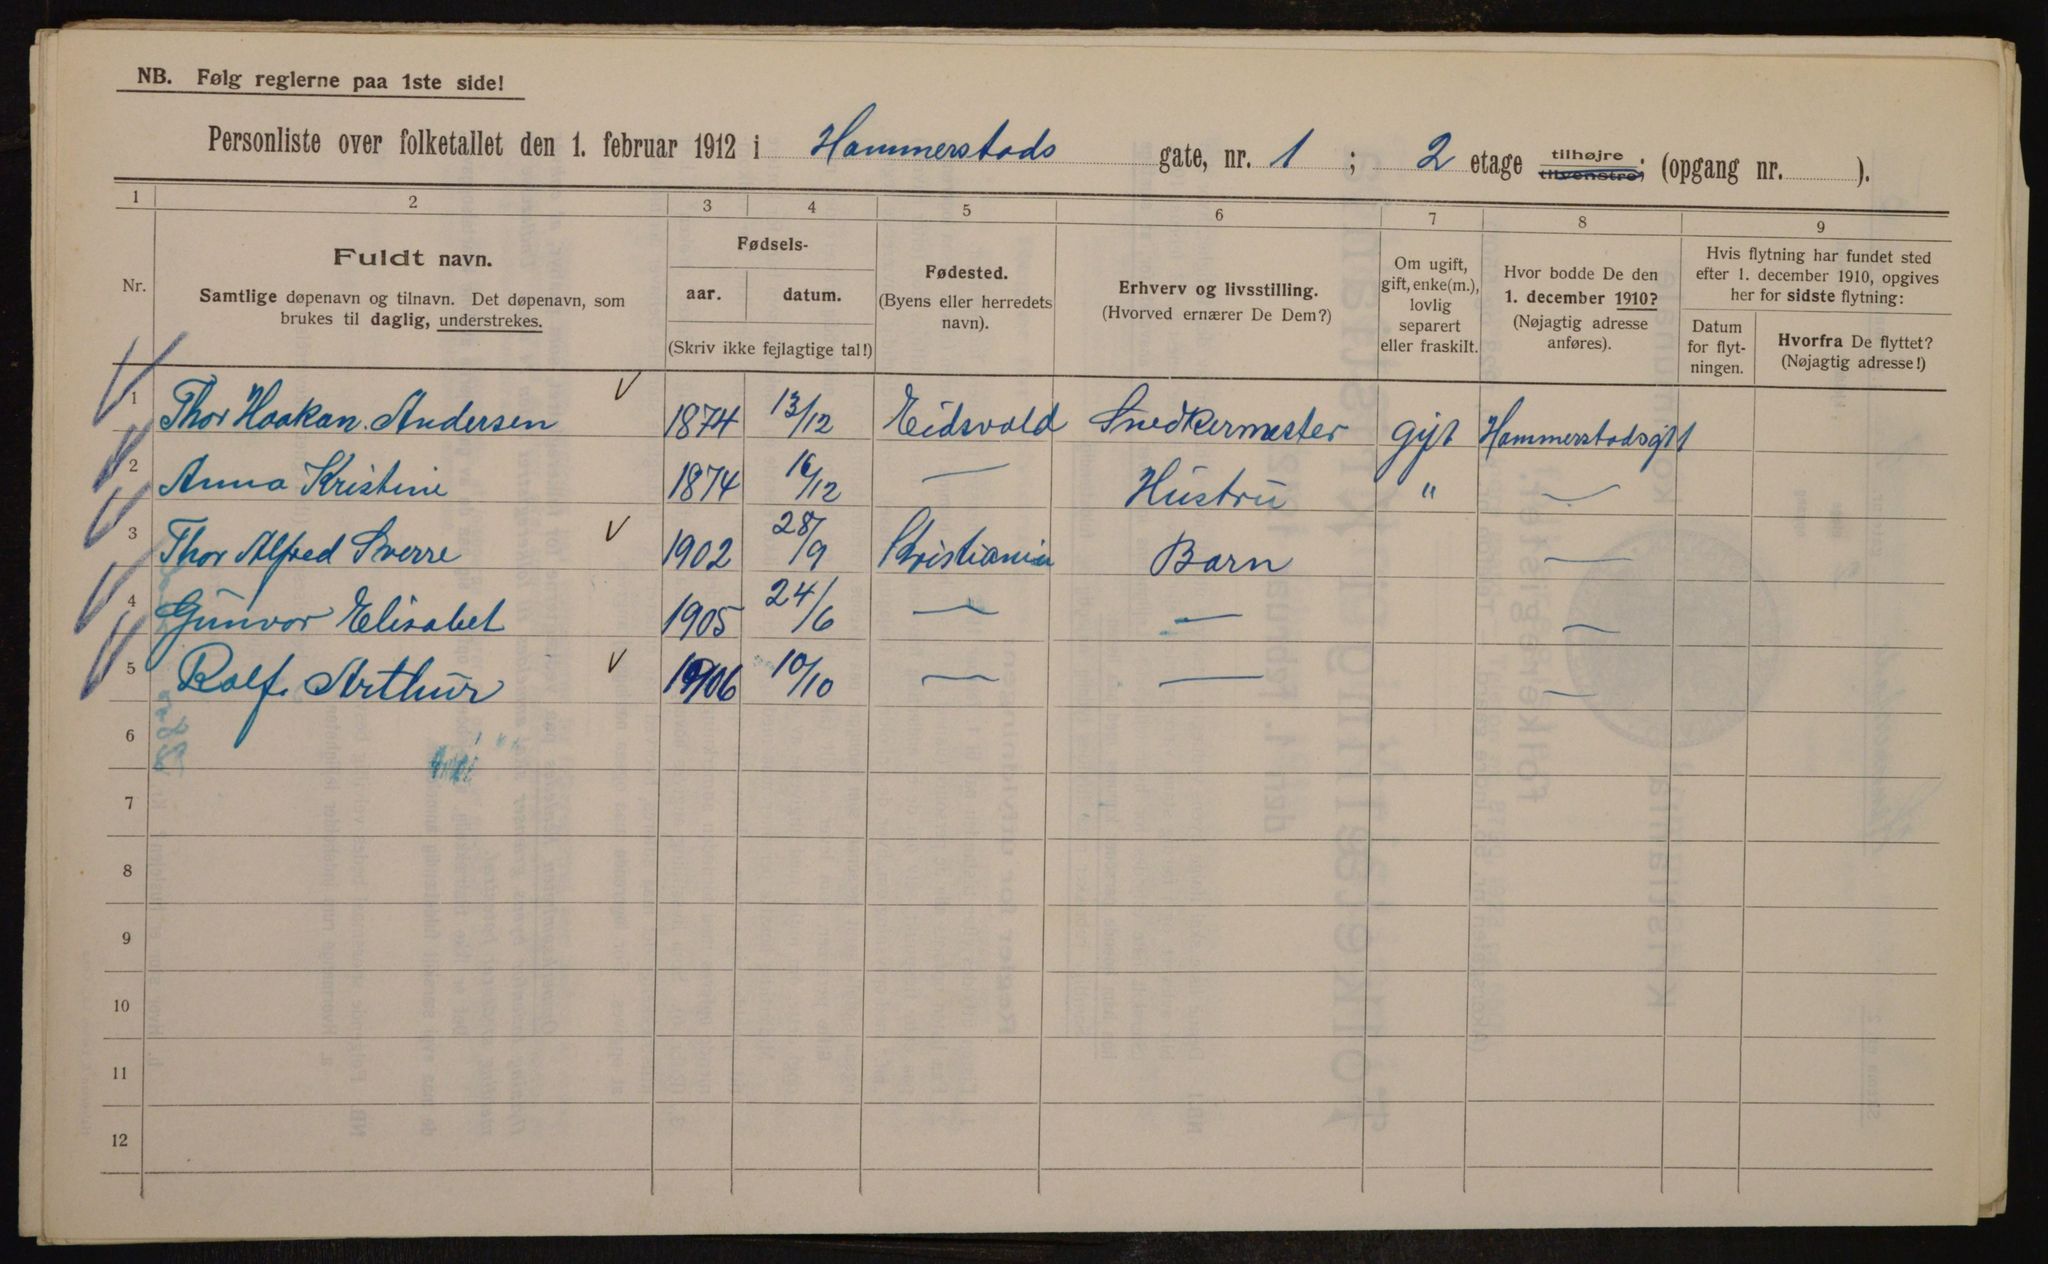 NB. Følg reglerne paa 1ste side!
Personliste over folketallet den 1. februar 1912 i Hammerstads gate, nr. 1 ; 2 etage tilhøjre tilvenstre; (opgang nr. ).
1 2 3 4 5 6 7 8 9
Nr.
Fuldt navn.
Samtlige døpenavn og tilnavn. Det døpenavn, som
brukes til daglig, understrekes.
Fødsels-
aar. datum.
(Skriv ikke fejlagtige tal!)
Fødested.
(Byens eller herredets
navn).
Erhverv og livsstilling.
(Hvorved ernærer De Dem?)
Om ugift,
gift, enke(m.),
lovlig
separert
eller fraskilt.
Hvor bodde De den
1. december 1910?
(Nøjagtig adresse
anføres).
Hvis flytning har fundet sted
efter 1. december 1910, opgives
her for sidste flytning:
Datum
for flyt-
ningen.
Hvorfra De flyttet?
(Nøjagtig adresse!)
1 Thor Haakan. Andersen 1874 13/12 Eidsvold Snedkermester gift Hammerstadsgt 1
2 Anna Kristine 1874 16/12 — Hustru " —
3 Thor Alfred Sverre 1902 28/9 Kristiania Barn —
4 Gunvor Elisabet 1905 24/6 — — —
5 Rolf Arthur 1906 10/10 — — —
6
7
8
9
10
11
12